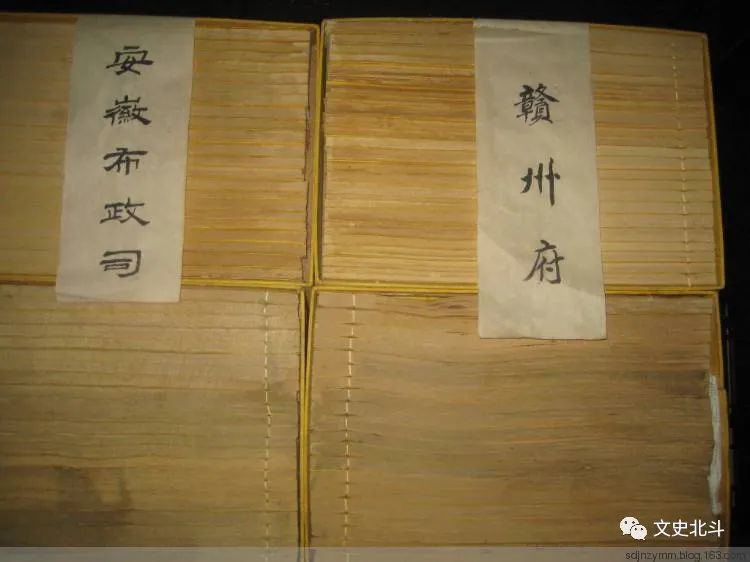 安徽布政司
赣州府
文史北斗
sdjnzymm.blog.163.com